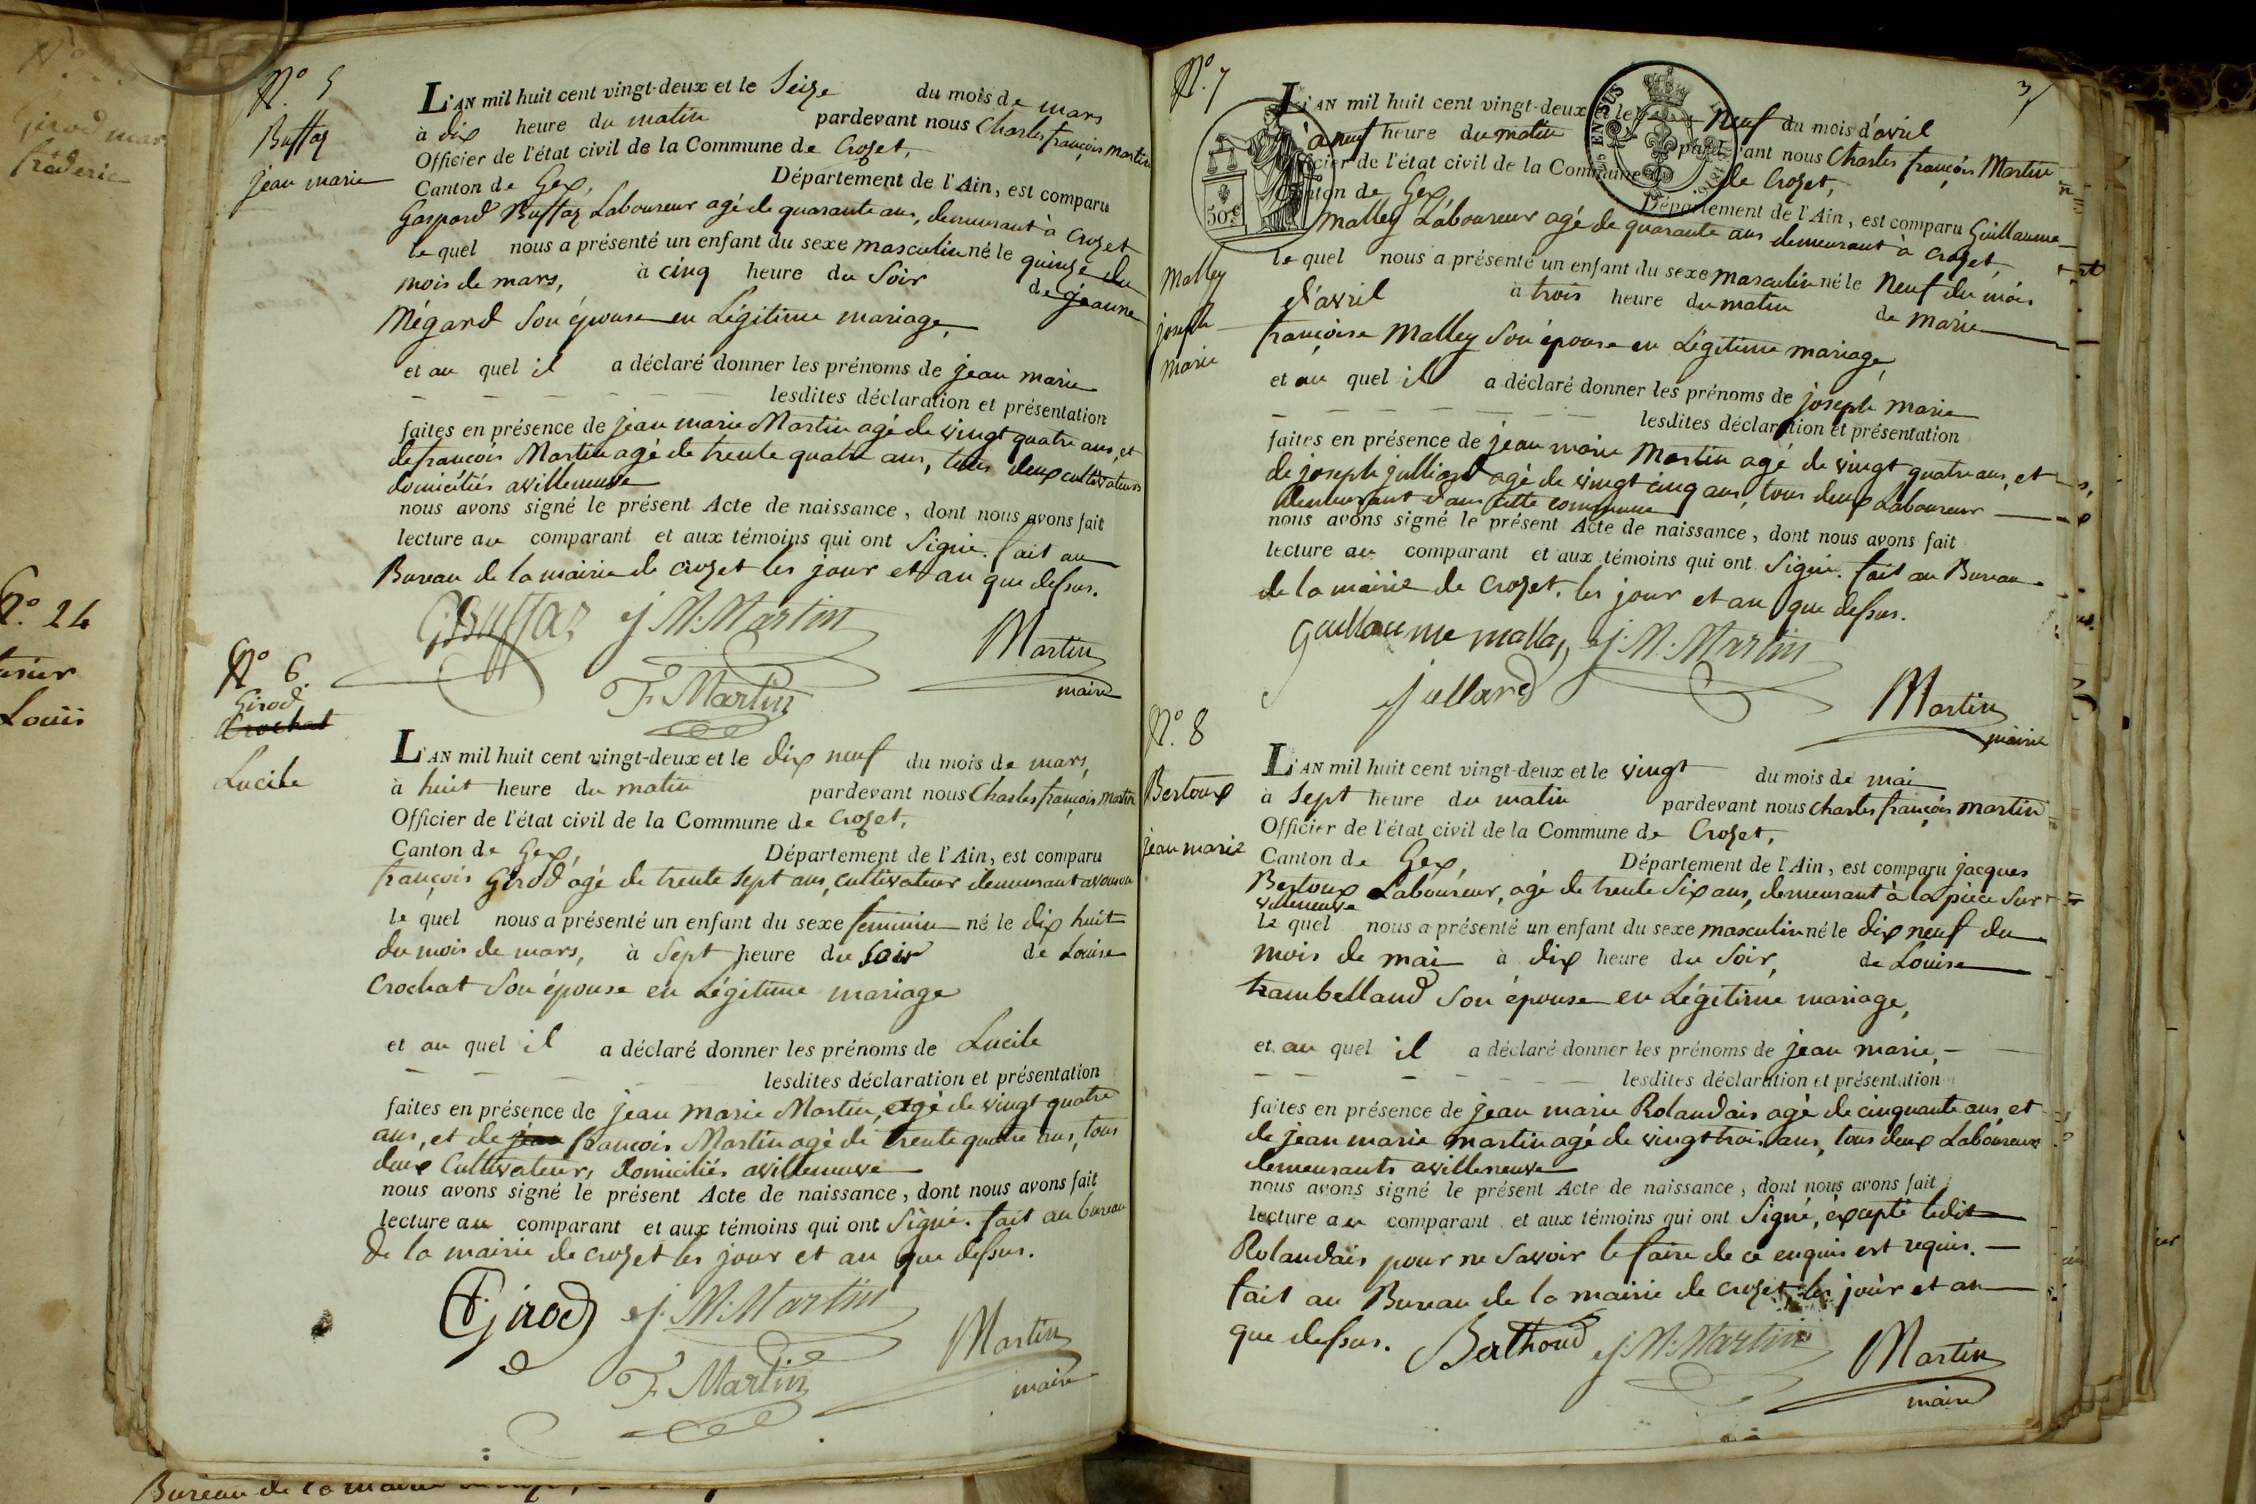 Girod mar
fréderic
N.° 24
Louis
N.° 5
Buffaz
jean marie
L'AN mil huit cent vingt-deux et le Seize du mois de mars
à dix heure du matin pardevant nous Charles françois martin
Officier de l'état civil de la Commune de Crozet,
Canton de Gex, Département de l'Ain, est comparu
Gaspard Buffaz Laboureur agé de quarante ans, demeurant à Crozet
le quel nous a présenté un enfant du sexe masculin né le quinze du
mois de mars, à cinq heure du Soir de jeanne
Mégard Son épouse en Légitime mariage,
et au quel il a déclaré donner les prénoms de jean marie
lesdites déclaration et présentation
faites en présence de jean marie Martin agé de vingt quatre ans, et
de françois Martin agé de trente quatre ans, tous deux cultivateurs
domiciliés avilleneuve
nous avons signé le présent Acte de naissance, dont nous avons fait
lecture au comparant et aux témoins qui ont Signé. fait au
Bureau de la mairie de crozet les jour et an que dessus.
GBuffaz J. M. Martin
Martin
F. Martin
maire
N.° 6.
Girod
Crochat
Lucile
L'AN mil huit cent vingt-deux et le dix neuf du mois de mars,
à huit heure du matin pardevant nous Charles françois Martin
Officier de l'état civil de la Commune de Crozet,
Canton de Gex, Département de l'Ain, est comparu
françois Girod agé de trente Sept ans, cultivateur demeurant
le quel nous a présenté un enfant du sexe feminin né le dix huit
du mois de mars, à Sept heure du Soir de Louise
Crochat Son épouse en Légitime mariage
et au quel il a déclaré donner les prénoms de Lucile
lesdites déclaration et présentation
faites en présence de jean marie Martin, agé de vingt quatre
ans, et de jean françois Martin agé de trente quatre ans, tous
deux Cultivateurs, domiciliés avilleneuve
nous avons signé le présent Acte de naissance, dont nous avons fait
lecture au comparant et aux témoins qui ont Signé. fait au bureau
de la mairie de crozet les jour et an que dessus.
F. Girod J. M. Martin
Martin
F. Martin
maire
Bureau de la mairie
3
N.° 7
50 c
EN SUS
Malley
joseph
marie
L'AN mil huit cent vingt-deux et le Neuf du mois d'avril
à neuf heure du matin pardevant nous Charles françois Martin
Officier de l'état civil de la Commune de Crozet,
Canton de Gex, Département de l'Ain, est comparu Guillaume
Malley Laboureur agé de quarante ans demeurant à Crozet,
le quel nous a présenté un enfant du sexe masculin né le Neuf du mois
d'avril à trois heure du matin de marie
françoise Malley Son épouse en Légitime mariage,
et au quel il a déclaré donner les prénoms de joseph marie
lesdites déclaration et présentation
faites en présence de jean marie Martin agé de vingt quatre ans, et
de joseph julliard agé de vingt cinq ans, tous deux Laboureur
demeurant dans cette commune
nous avons signé le présent Acte de naissance, dont nous avons fait
lecture au comparant et aux témoins qui ont Signé. fait au Bureau
de la mairie de Crozet, les jour et an que dessus.
Guillaume malley J. M. Martin
jullard
Martin
maire
N.° 8
Bertoux
jean marie
L'AN mil huit cent vingt-deux et le vingt du mois de mai
à Sept heure du matin pardevant nous charles françois martin
Officier de l'état civil de la Commune de Crozet,
Canton de Gex, Département de l'Ain, est comparu jacques
Bertoux Laboureur, agé de trente Six ans, demeurant à la pièce Sur
villeneuve
le quel nous a présenté un enfant du sexe masculin né le dix neuf du
mois de mai à dix heure du Soir, de Louise
trambelland Son épouse en Légitime mariage,
et au quel il a déclaré donner les prénoms de jean marie,
lesdites déclaration et présentation
faites en présence de jean marie Rolandais agé de cinquante ans, et
de jean marie martin agé de vingt trois ans, tous deux Laboureurs
demeurants avilleneuve
nous avons signé le présent Acte de naissance, dont nous avons fait
lecture au comparant et aux témoins qui ont Signé, éxcepté ledit
Rolandais pour ne Savoir le faire de ce enquis est requis.
fait au Bureau de la mairie de crozet, les jour et an
que dessus. Berthoud J. M. Martin
Martin
maire